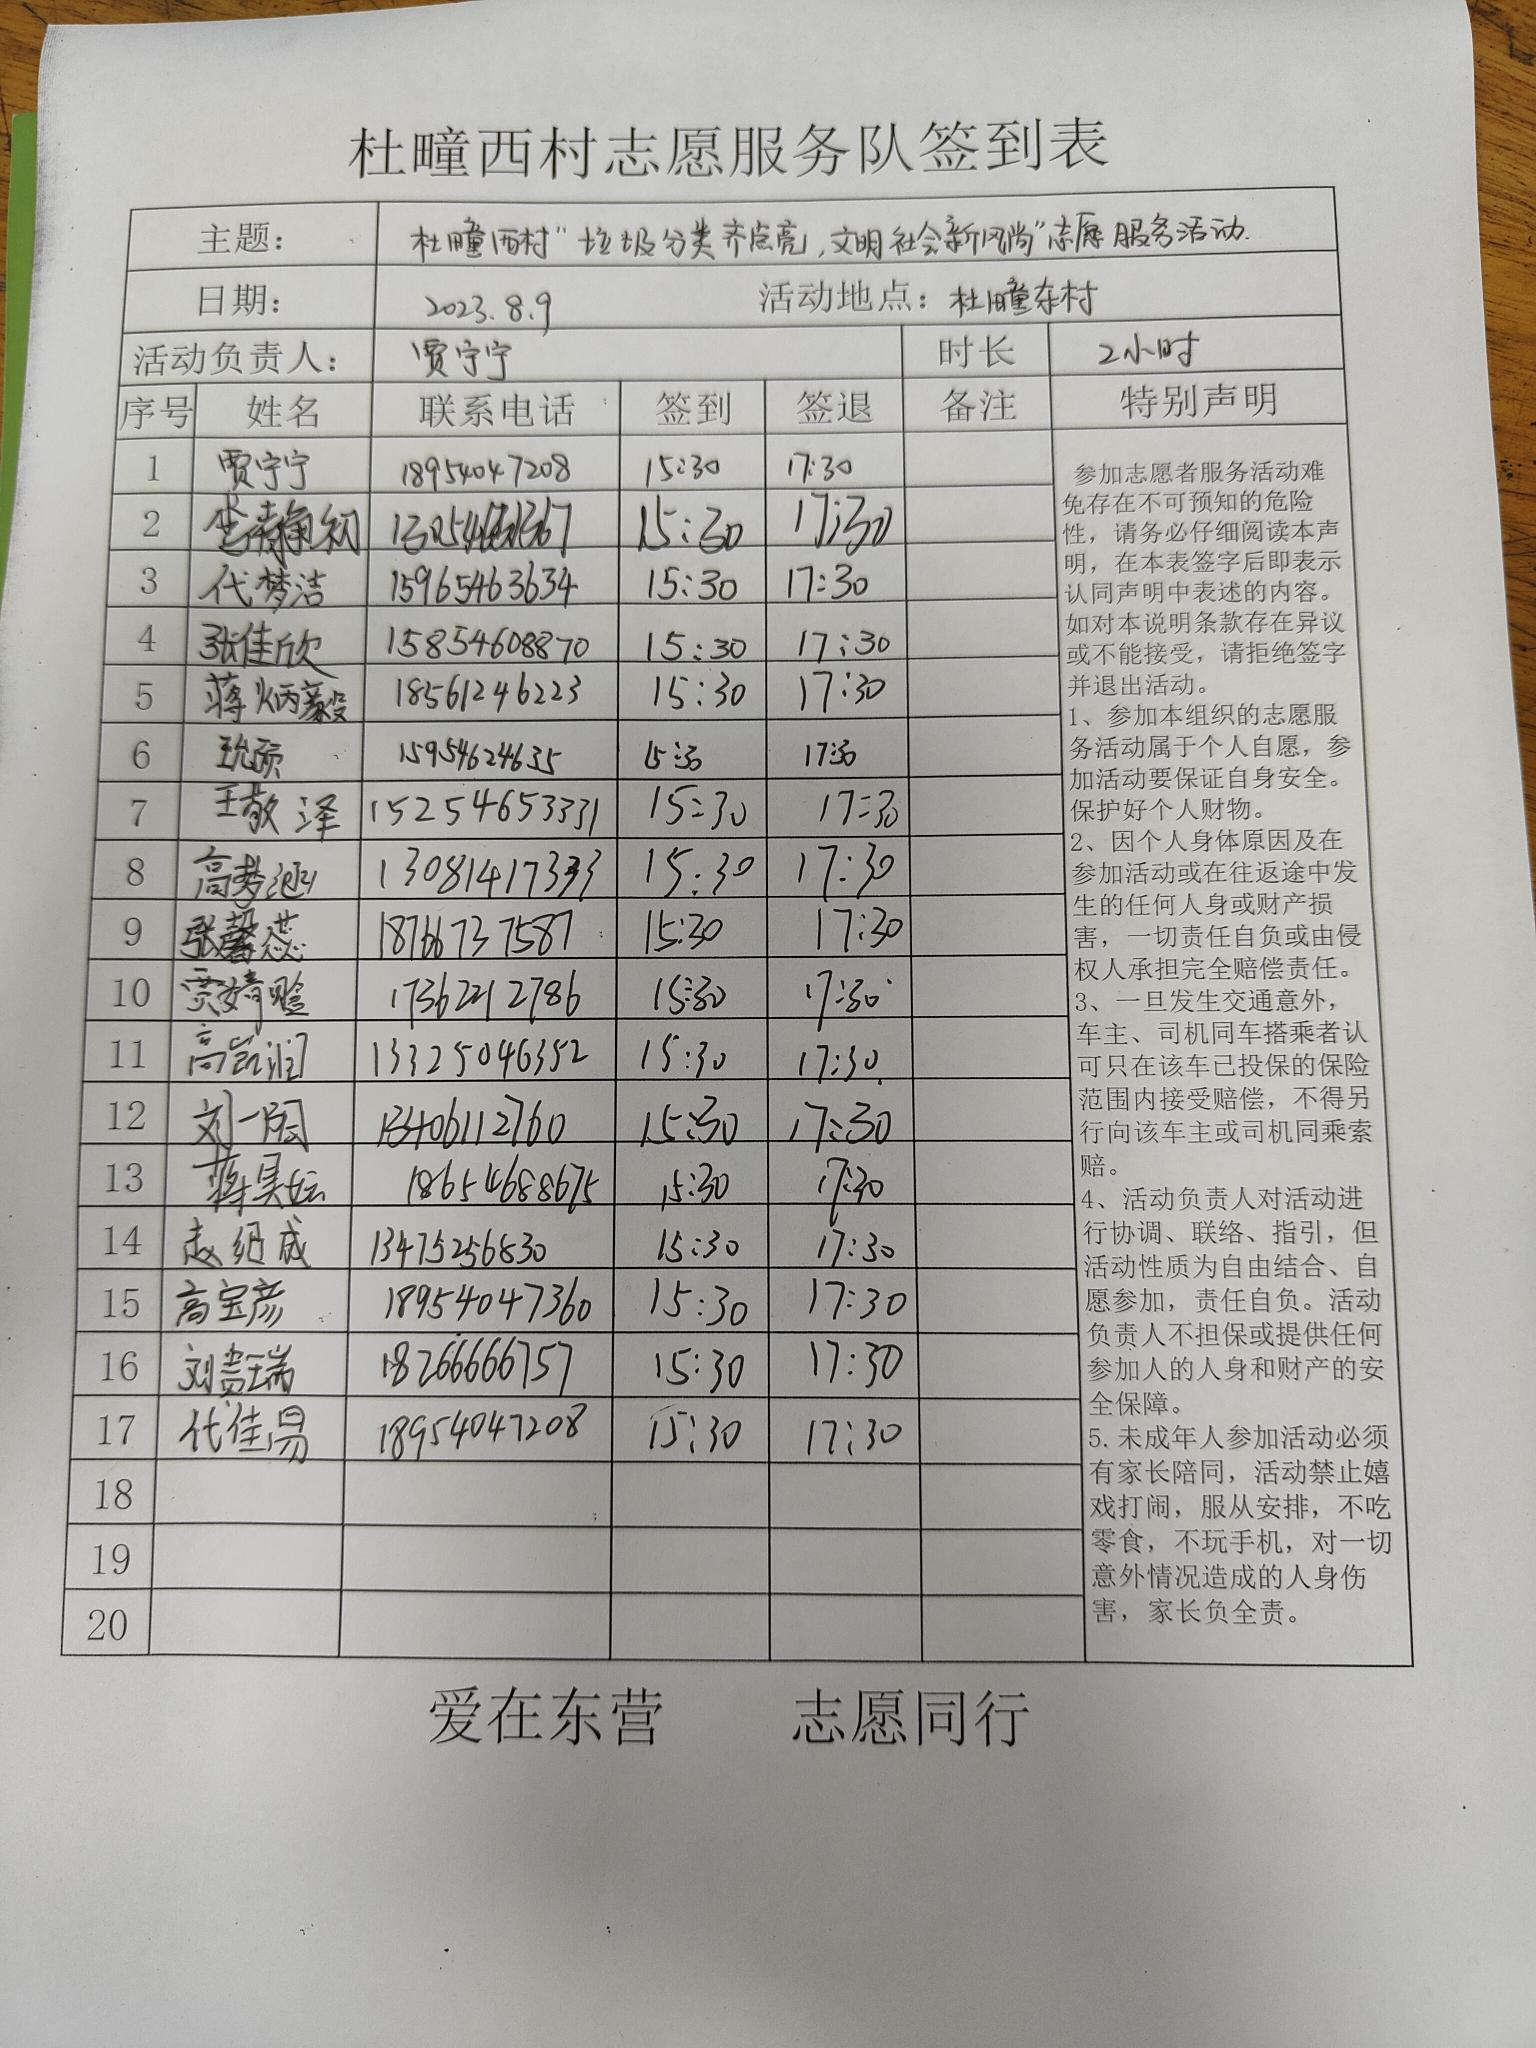 杜疃西村志愿服务队签到表
主题： 杜疃西村“垃圾分类齐点亮，文明社会新风尚”志愿服务活动.
日期： 2023.8.9 活动地点：杜疃东村
活动负责人： 贾宁宁 时长 2小时
序号 姓名 联系电话 签到 签退 备注 特别声明
1 贾宁宁 18954047208 15:30 17:30
2 15:30 17:30
3 代梦洁 15965463634 15:30 17:30
4 张佳欣 15854608870 15:30 17:30
5 蒋炳毅 18561246223 15:30 17:30
6 15954624635 15:30 17:30
7 王敬泽 15254653331 15:30 17:30
8 高梦涵 13081417333 15:30 17:30
9 张馨蕊 18766737587 15:30 17:30
10 贾婧晗 17362212786 15:30 17:30
11 高凯润 13325046352 15:30 17:30
12 刘一 13406112760 15:30 17:30
13 蒋昊妘 18654688675 15:30 17:30
14 赵绍成 13475256830 15:30 17:30
15 高宝彦 18954047360 15:30 17:30
16 刘贵瑞 18266666757 15:30 17:30
17 代佳易 18954047208 15:30 17:30
18
19
20
参加志愿者服务活动难
免存在不可预知的危险
性，请务必仔细阅读本声
明，在本表签字后即表示
认同声明中表述的内容。
如对本说明条款存在异议
或不能接受，请拒绝签字
并退出活动。
1、参加本组织的志愿服
务活动属于个人自愿，参
加活动要保证自身安全。
保护好个人财物。
2、因个人身体原因及在
参加活动或在往返途中发
生的任何人身或财产损
害，一切责任自负或由侵
权人承担完全赔偿责任。
3、一旦发生交通意外，
车主、司机同车搭乘者认
可只在该车已投保的保险
范围内接受赔偿，不得另
行向该车主或司机同乘索
赔。
4、活动负责人对活动进
行协调、联络、指引，但
活动性质为自由结合、自
愿参加，责任自负。活动
负责人不担保或提供任何
参加人的人身和财产的安
全保障。
5.未成年人参加活动必须
有家长陪同，活动禁止嬉
戏打闹，服从安排，不吃
零食，不玩手机，对一切
意外情况造成的人身伤
害，家长负全责。
爱在东营 志愿同行